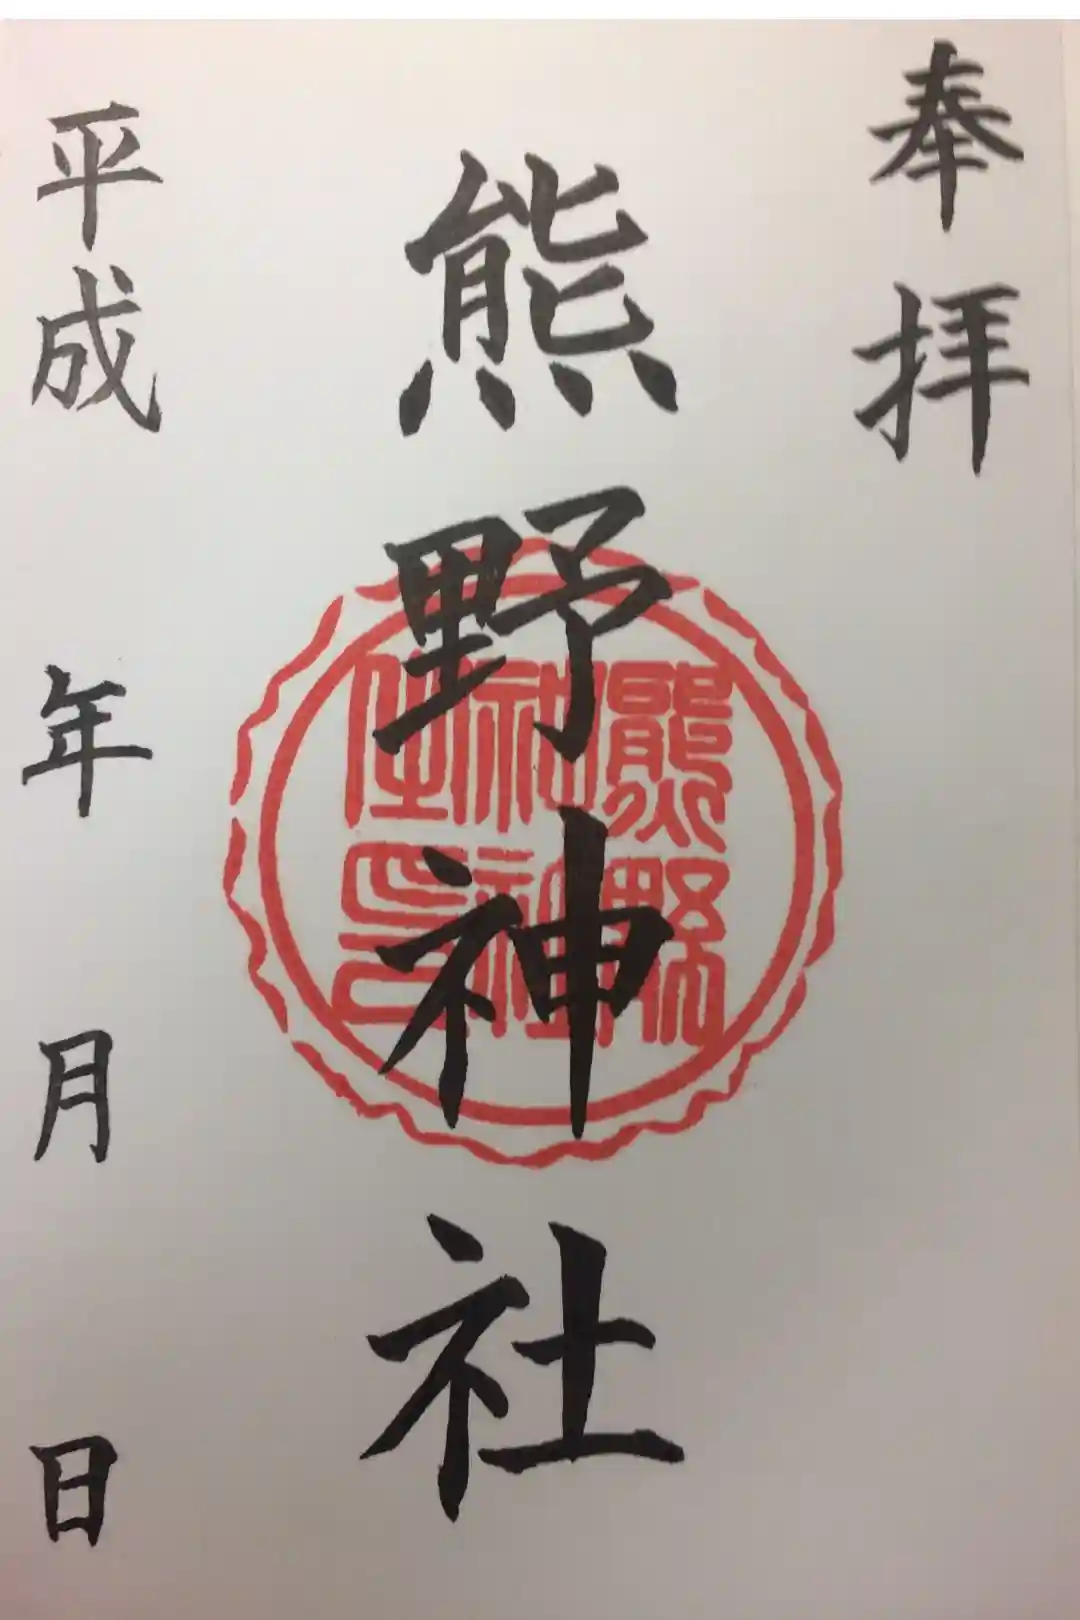 奉拝
熊野神社
平成 年 月 日
熊野
神社